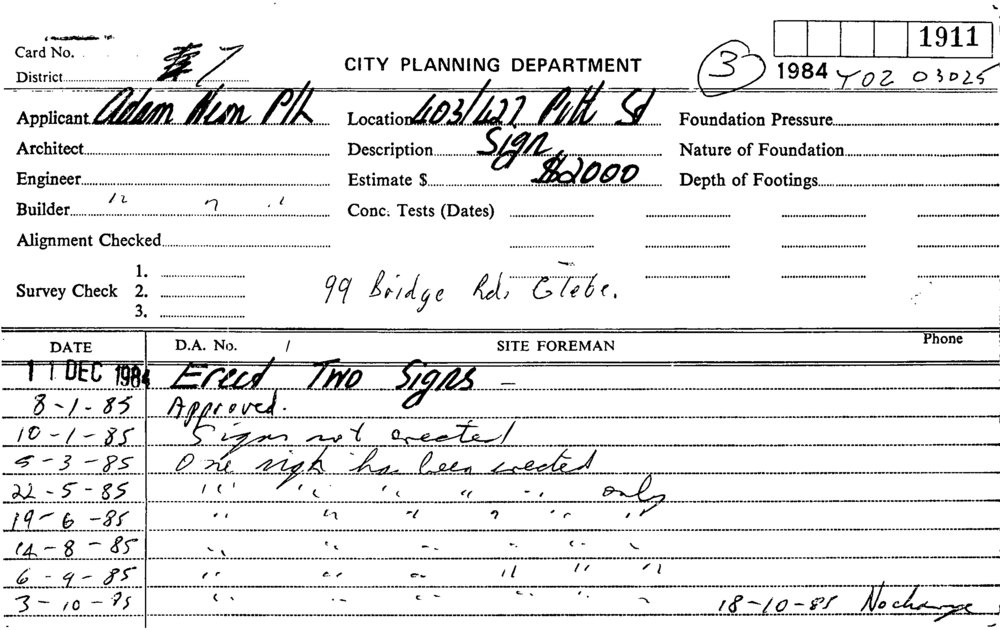 1911
Card No.
7
CITY PLANNING DEPARTMENT
3
1984 Y02 03025
District
Applicant Adam Neon P/L
Location 403/427 Pitt St
Foundation Pressure
Architect
Description Sign
Nature of Foundation
Engineer
Estimate $ $2000
Depth of Footings
Builder " " "
Conc. Tests (Dates)
Alignment Checked
1.
Survey Check 2.
3.
99 Bridge Rd, Glebe.
DATE D.A. No. / SITE FOREMAN Phone
11 DEC 1984 Erect Two Signs –
8-1-85 Approved.
10-1-85 Signs not erected
5-3-85 One sign has been erected
22-5-85 " " " " " only
19-6-85 " " " " " "
14-8-85 " " " " " "
6-9-85 " " " " " "
3-10-85 " " " " " " 18-10-85 No change